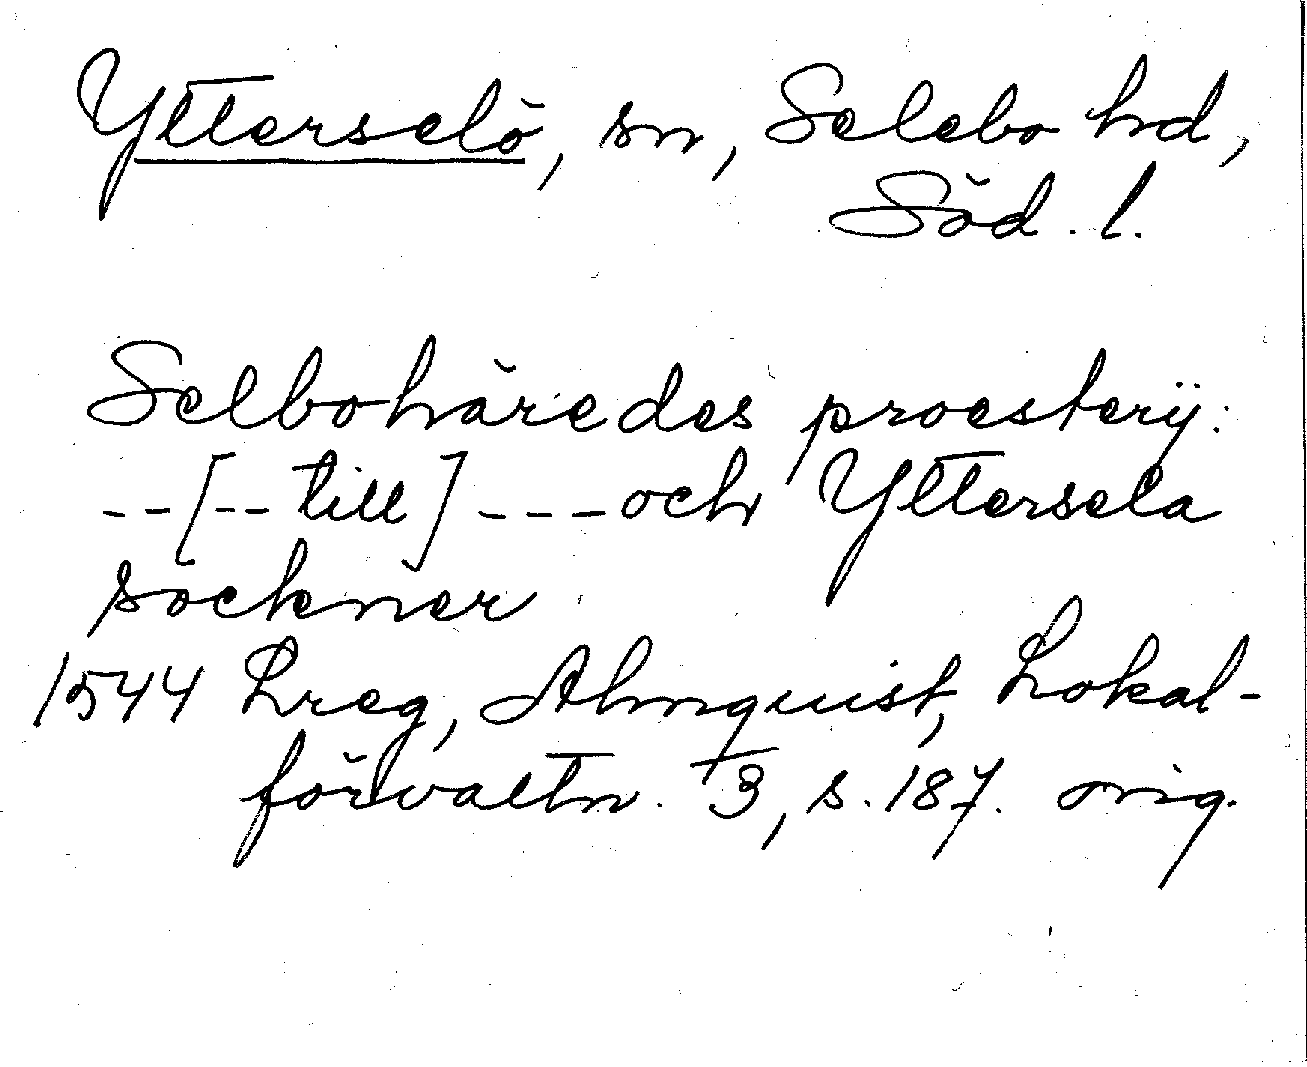 Ytterselö, sn, Selebo hd,
Söd. l.
Selbohäredes proesterij:
--[-- till] --- och Yttersela
sockner
1544 Lreg, Almquist, Lokal-
förvaltn. 3, s. 187. orig.